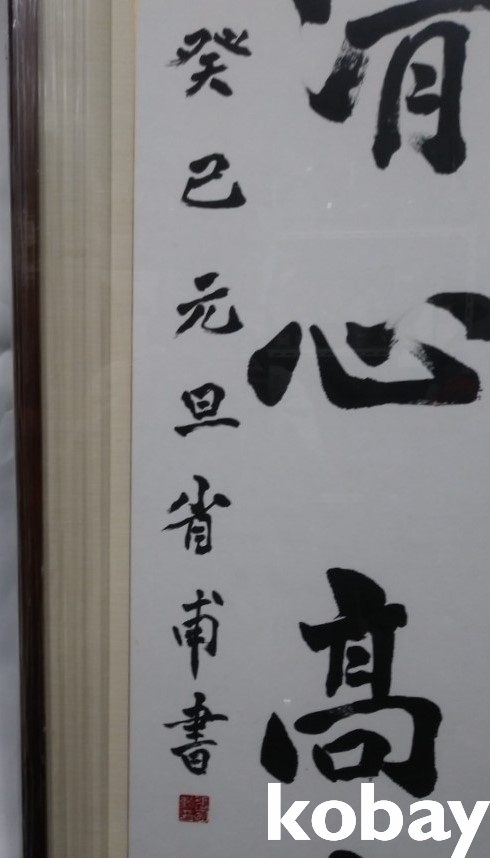 心高
癸巳元旦省甫書
kobay